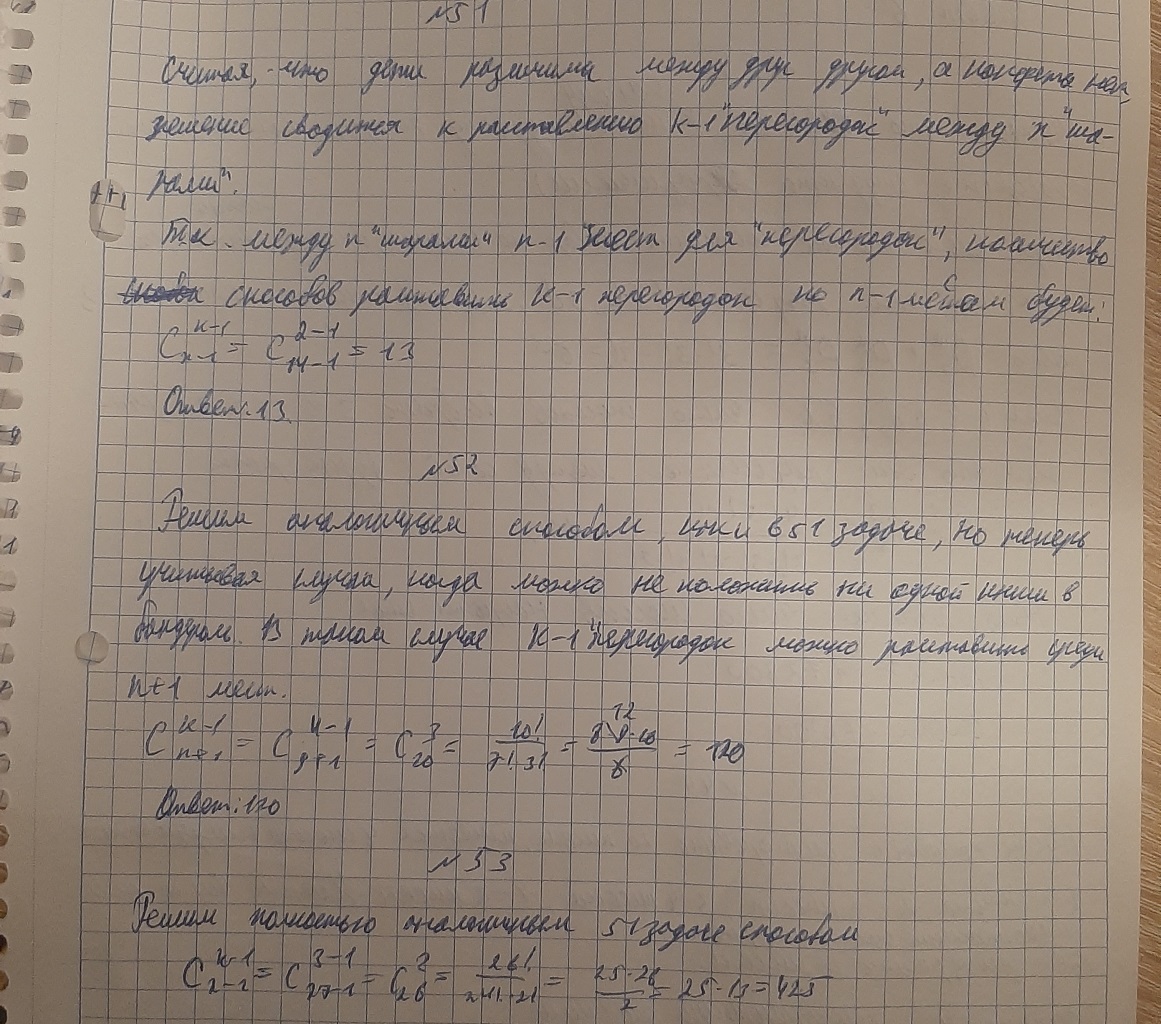 №51
Считая, что дети различимы между друг другом, а конфеты нет,
решение сводится к расставлению k-1 "перегородок" между n "ша-
рами".
Т.к. между n "шарами" n-1 мест для "перегородок", количество
способов расставить k-1 перегородок по n-1 местам будет:
C_{n-1}^{k-1} = C_{14-1}^{2-1} = 13
Ответ: 13.
№52
Решим аналогичным способом, как и в 51 задаче, но теперь
учитывая случаи, когда можно не положить ни одной книги в
бандероль. В таком случае k-1 "перегородок можно расставить среди
n+1 мест.
C_{n+1}^{k-1} = C_{9+1}^{4-1} = C_{10}^{3} = 10!/(7!·3!) = 8·9·10/6 = 120
12
Ответ: 120
№53
Решим полностью аналогичным 51 задаче способом
C_{n-1}^{k-1} = C_{27-1}^{3-1} = C_{26}^{2} = 26!/(24!·2!) = 25·26/2 = 25·13 = 425